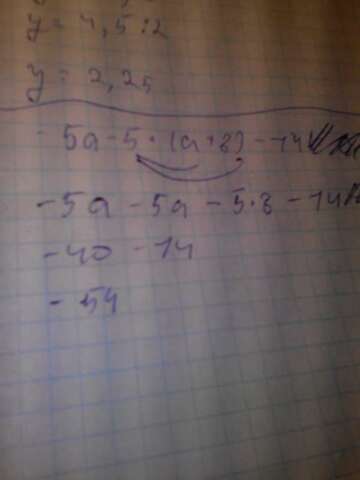 y = 4,5 : 2
y = 2,25
- 5a - 5 · (a + 8) - 14
- 5a - 5a - 5·8 - 14
- 40 - 14
- 54